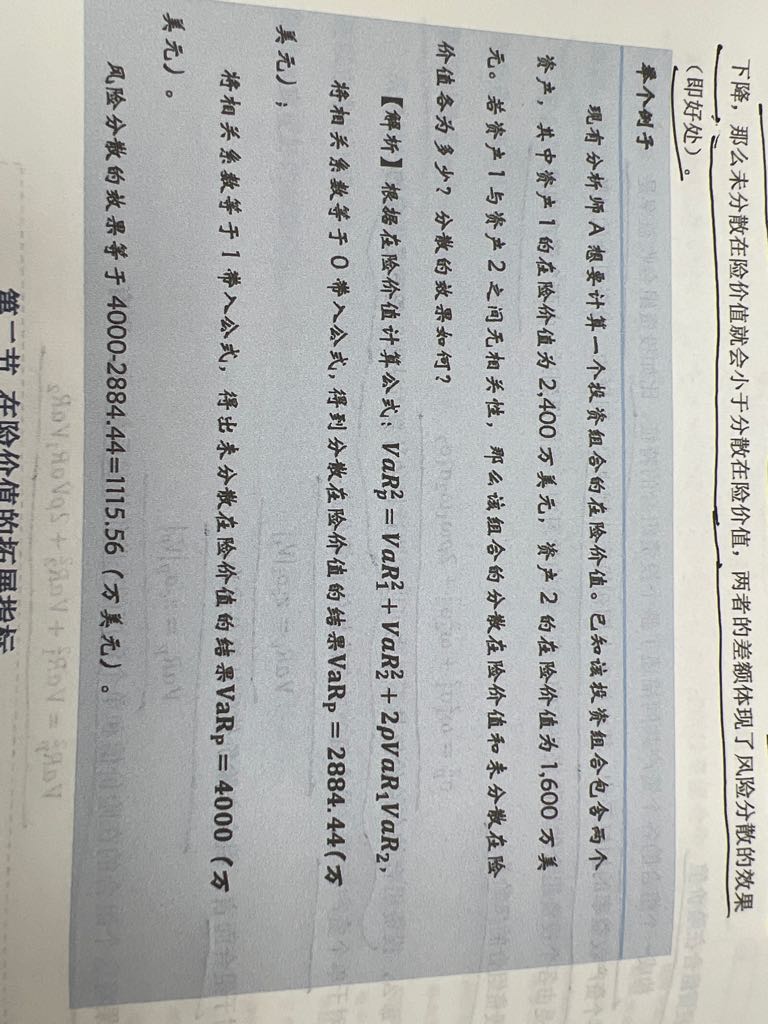 下降，那么未分散在险价值就会小于分散在险价值，两者的差额体现了风险分散的效果
（即好处）。
举个例子
现有分析师 A 想要计算一个投资组合的在险价值。已知该投资组合包含两个
资产，其中资产 1 的在险价值为 2,400 万美元，资产 2 的在险价值为 1,600 万美
元。若资产 1 与资产 2 之间无相关性，那么该组合的分散在险价值和未分散在险
价值各为多少？分散的效果如何？
【解析】根据在险价值计算公式：VaR_p^2 = VaR_1^2 + VaR_2^2 + 2ρVaR_1VaR_2，
将相关系数等于 0 带入公式，得到分散在险价值的结果VaR_p = 2884.44（万
美元）；
将相关系数等于 1 带入公式，得出未分散在险价值的结果VaR_p = 4000（万
美元）。
风险分散的效果等于 4000-2884.44=1115.56（万美元）。
第一节 在险价值的拓展指标